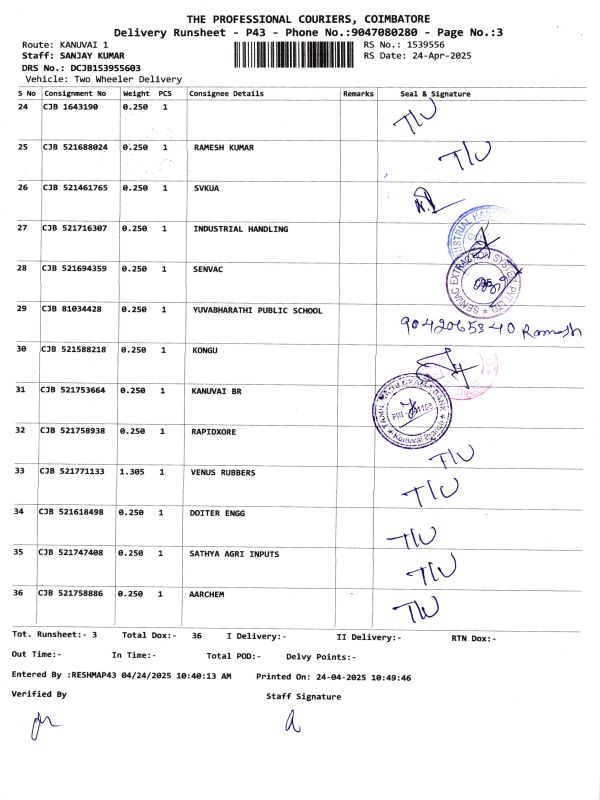 THE PROFESSIONAL COURIERS, COIMBATORE
Delivery Runsheet - P43 - Phone No.:9047080280 - Page No.:3
Route: KANUVAI 1 RS No.: 1539556
Staff: SANJAY KUMAR RS Date: 24-Apr-2025
DRS No.: DCJB153955603
Vehicle: Two Wheeler Delivery
S No Consignment No Weight PCS Consignee Details Remarks Seal & Signature
24 CJB 1643190 0.250 1 T/U
25 CJB 521688024 0.250 1 RAMESH KUMAR T/U
26 CJB 521461765 0.250 1 SVKUA
27 CJB 521716307 0.250 1 INDUSTRIAL HANDLING
28 CJB 521694359 0.250 1 SENVAC SENVAC EXTRACTION SYSTEM PVT LTD
29 CJB 81034428 0.250 1 YUVABHARATHI PUBLIC SCHOOL 9042065340 Ramesh
30 CJB 521588218 0.250 1 KONGU
31 CJB 521753664 0.250 1 KANUVAI BR
32 CJB 521758938 0.250 1 RAPIDXORE T/U
33 CJB 521771133 1.305 1 VENUS RUBBERS T/U
34 CJB 521618498 0.250 1 DOITER ENGG T/U
35 CJB 521747408 0.250 1 SATHYA AGRI INPUTS T/U
36 CJB 521758886 0.250 1 AARCHEM T/U
Tot. Runsheet:- 3 Total Dox:- 36 I Delivery:- II Delivery:- RTN Dox:-
Out Time:- In Time:- Total POD:- Delvy Points:-
Entered By :RESHMAP43 04/24/2025 10:40:13 AM Printed On: 24-04-2025 10:49:46
Verified By Staff Signature